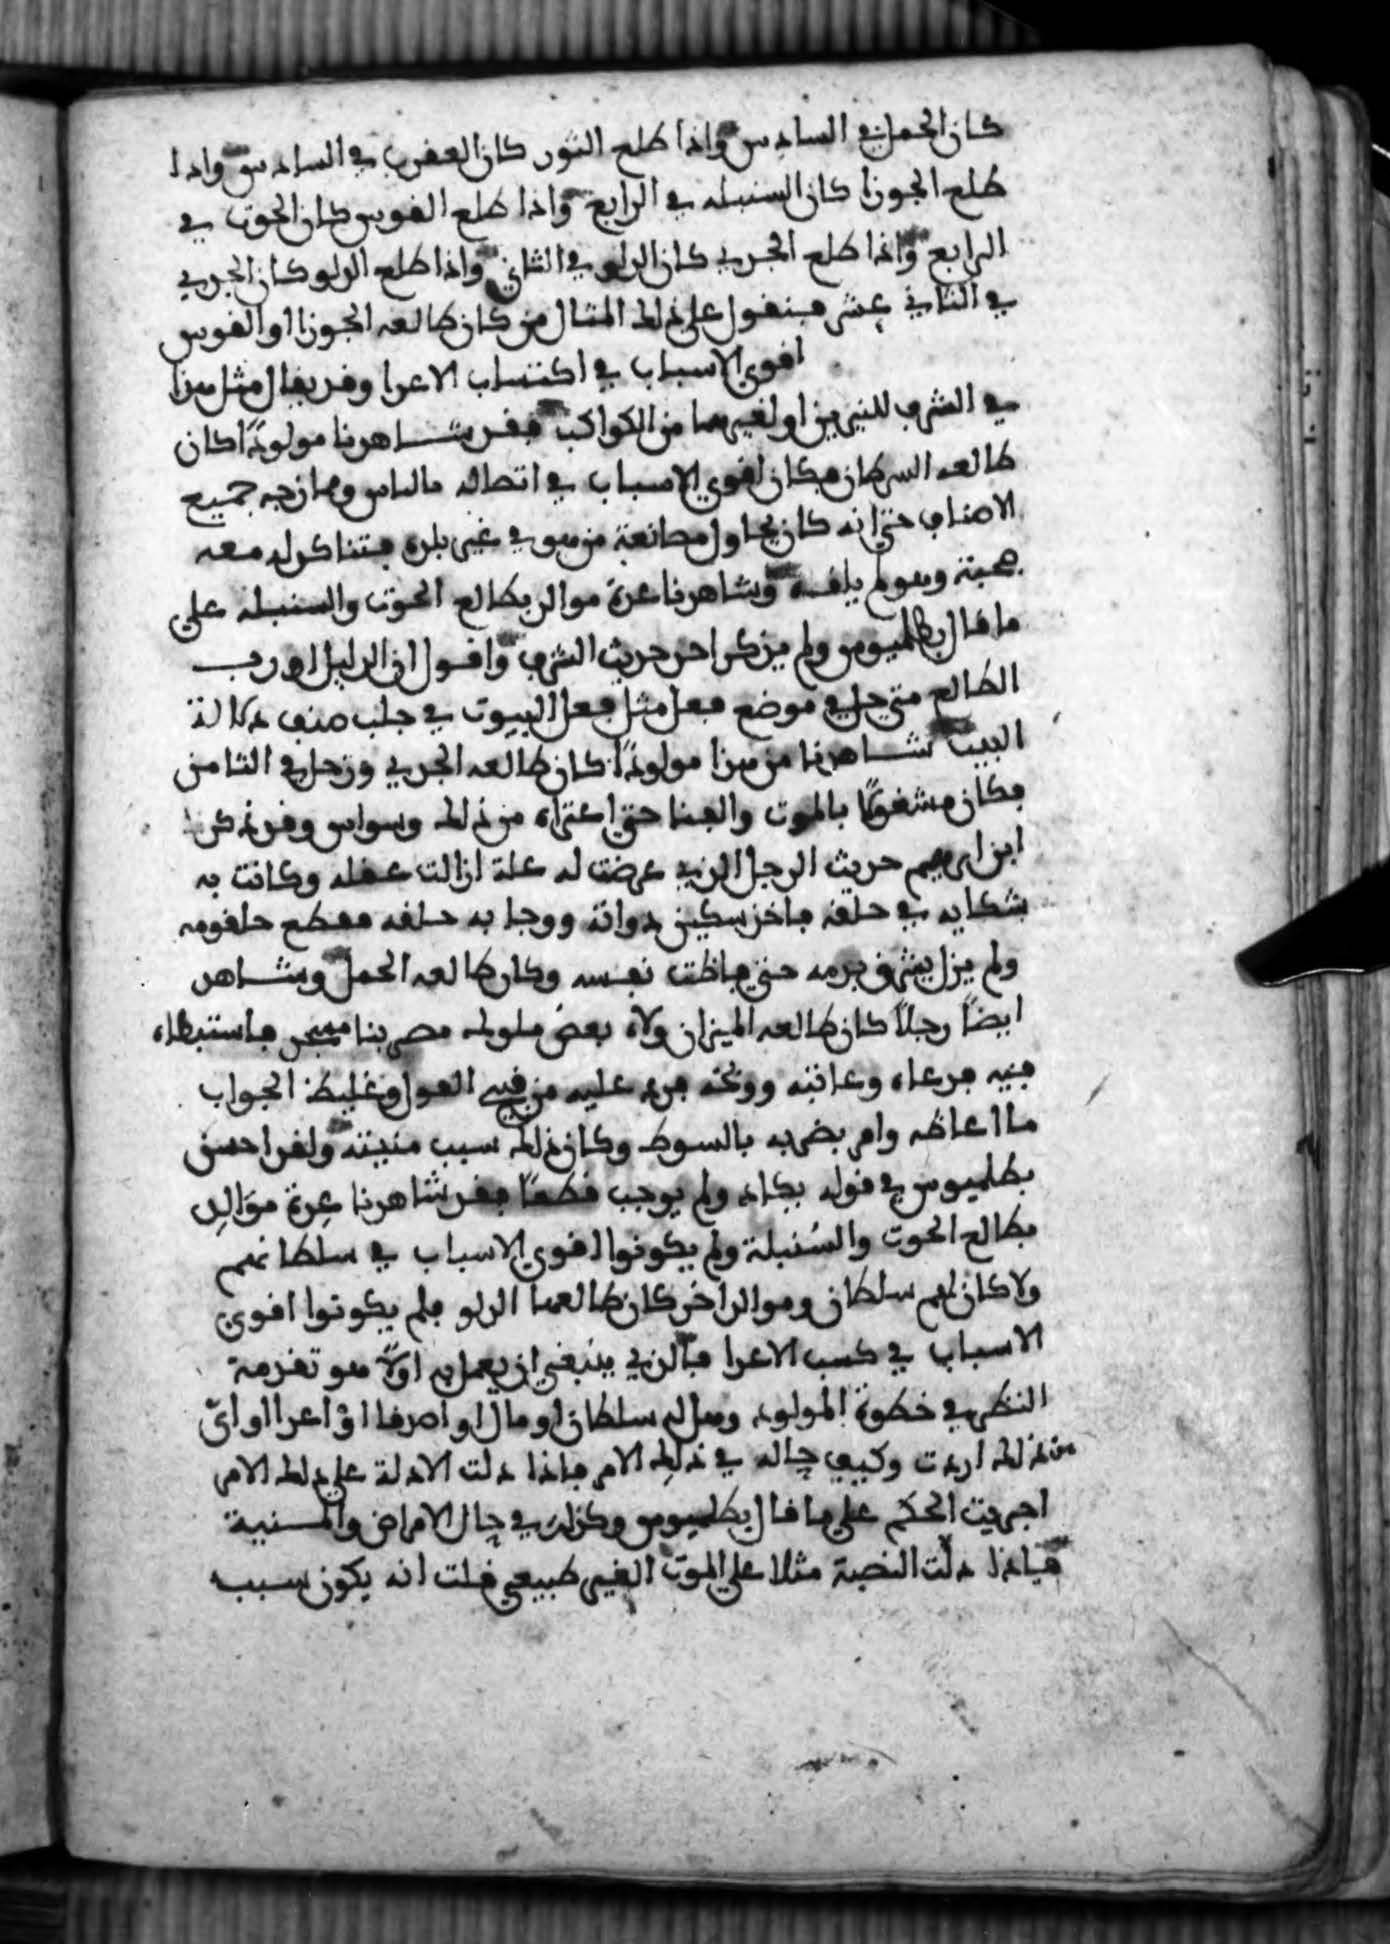 كان الحمل في السادس واذا طلع الثور كان العقرب في السادس واذا
طلع الجوزا كان السنبله في الرابع واذا طلع القوس كان الحوت في
الرابع واذا طلع الجدي كان الدلو في الثاني واذا طلع الدلو كان الجدي
في الثاني عشر فنقول على ذلك المثال من كان طالعه الجوزا او القوس
اقوى الاسباب في اكتساب الاعدا وقد يقال مثل هذا
في الشرف للنيرين او لغيرهما من الكواكب فقد شاهدنا مولودًا كان
طالعه السرطان فكان اقوى الاسباب في اتصاله بالناس وممازجه جميع
الاصناف حتى انه كان يحاول مصانعة من هو في غير بلده فتتاكد له معه
صحبة وهو لم يلقه وشاهدنا عدة موالد بطالع الحوت والسنبلة على
ما قال بطلميوس ولم يذكر احد حديث الشرف واقول ان الدليل او رب
الطالع متى حل في موضع فعل مثل فعل البيوت في جلب صنف دلالة
البيت شاهدنا من هذا مولودًا كان طالعه الجدي وزحل في الثامن
فكان مشغوفًا بالموت والفنا حتى اعتراه من ذلك وسواس وقد ذكر
ابن ابراهيم حديث الرجل الذي عرضت له علة ازالت عقله وكانت به
شكاية في حلقه فاخذ سكين دواة ووجا به حلقه فقطع حلقومه
ولم يزل يغثر في دمه حتى فاظت نفسه وكان طالعه الحمل وشاهد
ايضًا رجلاً كان طالعه الميزان ولاه بعض ملوك مصر بنا مسجد فاستبطاه
فيه فدعاه وعاتبه ووبخه فرد عليه من قبيح القول وغليظ الجواب
ما اغاظه وامر بضربه بالسوط وكان ذلك سبب منيته ولقد احسن
بطلميوس في قوله بكان ولم يوجب قطعًا فقد شاهدنا عدة موالد
بطالع الحوت والسنبلة ولم يكونوا اقوى الاسباب في سلطانهم
ولا كان لهم سلطان وموالد اخر كان طالعها الدلو فلم يكونوا اقوى
الاسباب في كسب الاعدا فالذي ينبغي ان يعمل به اولاً هو تقدمة
النظر في خطوة المولود وهل له سلطان او مال او اصدقا او اعدا او اي
من ذلك اردت وكيف حاله في ذلك الامر فاذا دلت الادلة على ذلك الامر
اجريت الحكم على ما قال بطلميوس وكذلك في حال الامراض والمنية
فاذا دلت النصبة مثلا على الموت الغير طبيعي قلت انه يكون سببه